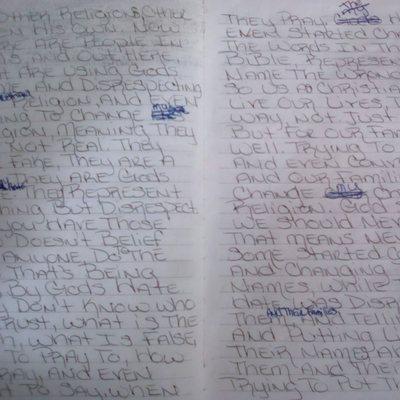 OTHER RELIGIONS, OTHER
ON HIS OWN. NOW
RE ARE PEOPLE IN
S, AND OUT HERE,
T ARE USING GODS
AND DISRESPECTING
RELIGION, AND EVEN
NG TO CHANGE
IGION, MEANING THEY
NOT REAL THEY
FAKE, THEY ARE A
THEY ARE GODS
THEY REPRESENT
HING BUT DISRESPECT.
YOU HAVE THOSE
DOESN'T BELIEF
ANYONE, DO THE
THAT'S BEING
BY GODS HATE
DON'T KNOW WHO
TRUST, WHAT IS THE
H, WHAT IS FALSE,
TO PRAY TO, HOW
PRAY, AND EVEN
T TO SAY, WHEN
THEY PRAY
EVEN STARTED CH
THE WORDS IN TH
BIBLE, REPRESENT
NAME THE WRONG
SO US AS CHRISTIA
LIVE OUR LIVES, T
WAY, NO JUST
BUT FOR OUR FAM
WELL. TRYING TO
AND EVEN CONV
AND OUR FAMILI
CHANGE
RELIGION. GOD S
WE SHOULD NEV
THAT MEANS NE
SOME STARTED C
AND CHANGING
NAMES, WHILE
HATE, IT'S DISP
AND THEIR FAMILIES
THE AND TELLI
AND PUTTING U
THEIR NAMES A
THEM AND THE
TRYING TO PUT TH